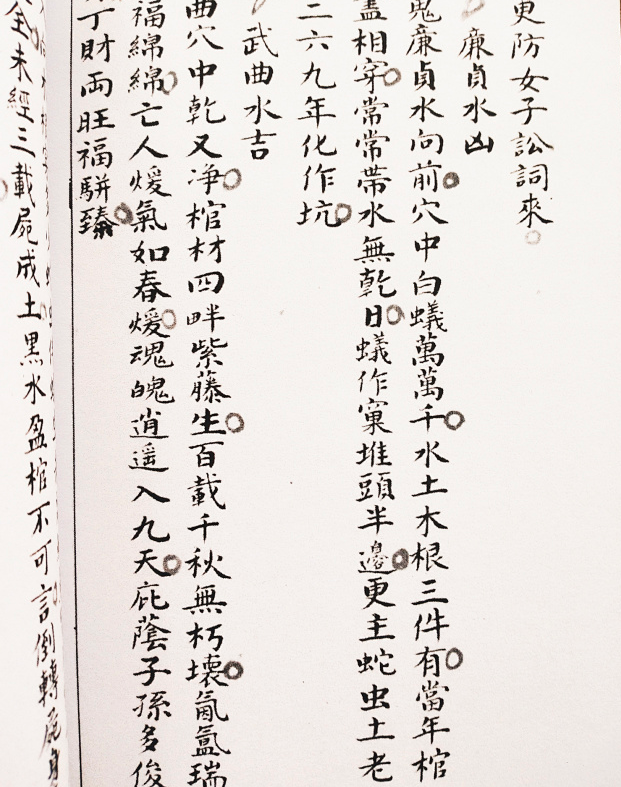 更防女子訟詞來
廉貞水凶
鬼廉貞水向前穴中白蟻萬萬千水土木根三件有當年棺
盡相穿常常帶水無乾日蟻作窠堆頭半邊更主蛇虫土老
二六九年化作坑
武曲水吉
曲穴中乾又净棺材四畔紫藤生百載千秋無朽壞氤氳瑞
福綿綿亡人煖氣如春煖魂魄逍遥入九天庇蔭子孫多俊
丁財両旺福駢臻
全未經三載屍成土黑水盈棺不可言倒轉屍身